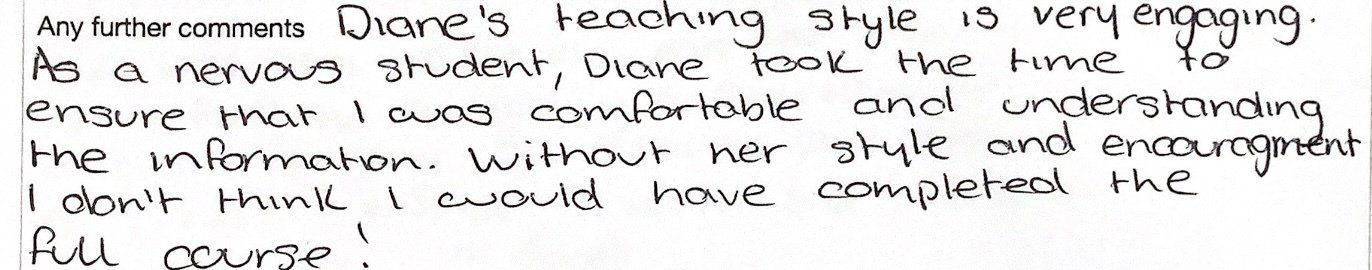 Any further comments Diane's teaching style is very engaging.
As a nervous student, Diane took the time to
ensure that I was comfortable and understanding
the information. Without her style and encouragment
I don't think I would have completed the
full course!